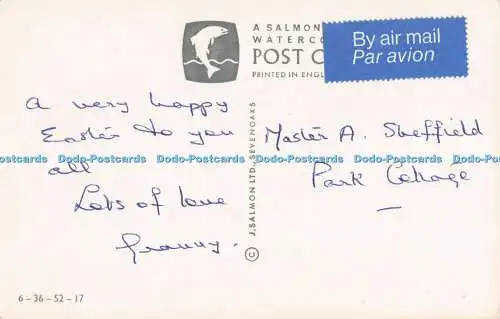 A SALMON
WATERCO
POST C
PRINTED IN ENGL
By air mail
Par avion
A very happy
Easter to you
all
Lots of love
Granny.
Master A. Sheffield
Park Cottage
Dodo-Postcards Dodo-Postcards Dodo-Postcards Dodo-Postcards Dodo-Postcards Dodo-Postcards
© J. SALMON LTD., SEVENOAKS
6-36-52-17